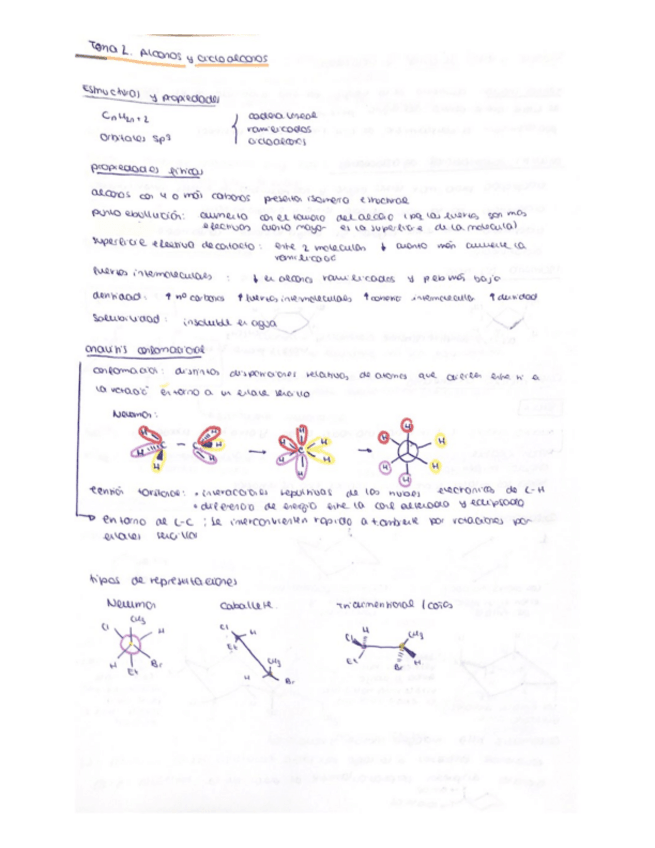 Tema 2. Alcanos y cicloalcanos
Estructura y propiedades
CnH2n+2
orbitales sp3
cadena lineal
ramificados
cicloalcanos
propiedades físicas
alcanos con 4 o más carbonos presentan isomería estructural
punto ebullución: aumenta con el tamaño del alcano (pq las fuerzas son más
efectivas cuanto mayor es la superficie de la molécula)
superficie efectiva de contacto: entre 2 moléculas ↓ cuanto más aumente la
ramificación
fuerzas intermoleculares: ↓ en alcanos ramificados y peb más bajo
densidad: ↑ nº carbonos ↑ fuerzas intermoleculares ↑ intermolecular ↑ densidad
solubilidad: insoluble en agua
análisis conformacional
conformación: distintas disposiciones relativas de átomos que difieren entre si a
la rotación entorno a un enlace sencillo
Newman:
H H H H H H
H H H H H H
H H H H H H
tensión torsional: • interacciones repulsivas de las nubes electrónicas de C-H
• diferencia de energía entre la conf alternada y eclipsada
entorno al C-C: se interconvierten rápido a tambiente por rotaciones por
enlaces sencillos
tipos de representaciones
Newman caballete Tridimentional / cuñas
Cl CH3 H H Et Br
Cl H Et CH3 H Br
Cl H Et CH3 H Br